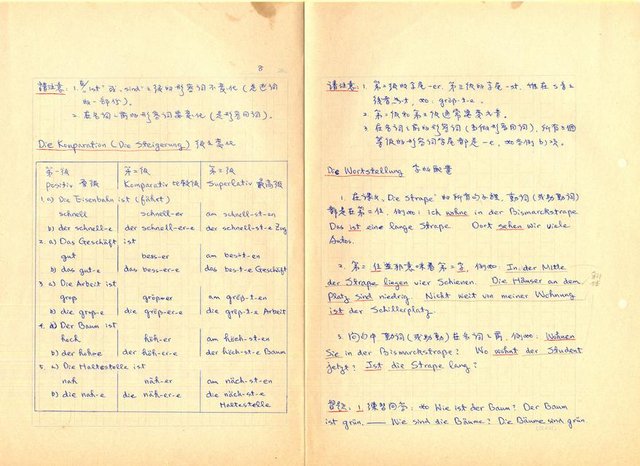 8
請注意: 1. 在 "ist" 或 "sind" 之後的形容词不变化 (是述词
的一部份).
2. 在名词之前的形容词要变化 (是形容词).
Die Komparation (Die Steigerung) 級之变化
第一級 第二級 第三級
positiv 普級 Komparativ 比較級 Superlativ 最高級
1. a) Die Eisenbahn ist (fährt)
schnell schnell-er am schnell-st-en
b) der schnell-e der schnell-er-e der schnell-st-e Zug
2. a) Das Geschäft ist
gut bess-er am best-en
b) das gut-e das bess-er-e das best-e Geschäft
3. a) Die Arbeit ist
groß größ-er am größ-t-en
b) die groß-e die größ-er-e die größ-t-e Arbeit
4. a) Der Baum ist
hoch höh-er am höch-st-en
b) der hohe der höh-er-e der höch-st-e Baum
5. a) Die Haltestelle ist
nah näh-er am näch-st-en
b) die nah-e die näh-er-e die näch-st-e
Haltestelle
請注意: 1. 第二級的字尾 -er. 第三級的字尾 -st. 惟在
größ-t-e.
2. 第二級和第三級通常要变音.
3. 在名词之前的形容词, 所有三個
等級的形容词字尾都是 -e.
Die Wortstellung 字的配置
1. 在課文 "Die Straße" 的所有的句子裡, 動词 (或助動词)
都是在第二位, 例如: Ich wohne in der Bismarckstraße
Das ist eine lange Straße. Dort sehen wir viele
Autos.
2. 第二位並非意味着第二字, 例如: In der Mitte
der Straße liegen vier Schienen. Die Häuser an dem
Platz sind niedrig. Nicht weit von meiner Wohnung
ist der Schillerplatz.
3. 问句中動词 (或助動) 在名词之前, 例如: Wohnen
Sie in der Bismarckstraße? Wo wohnt der Student
jetzt? Ist die Straße lang?
習題: 1. 練習问答: 如 Wie ist der Baum? Der Baum
ist grün. — Wie sind die Bäume? Die Bäume sind grün.